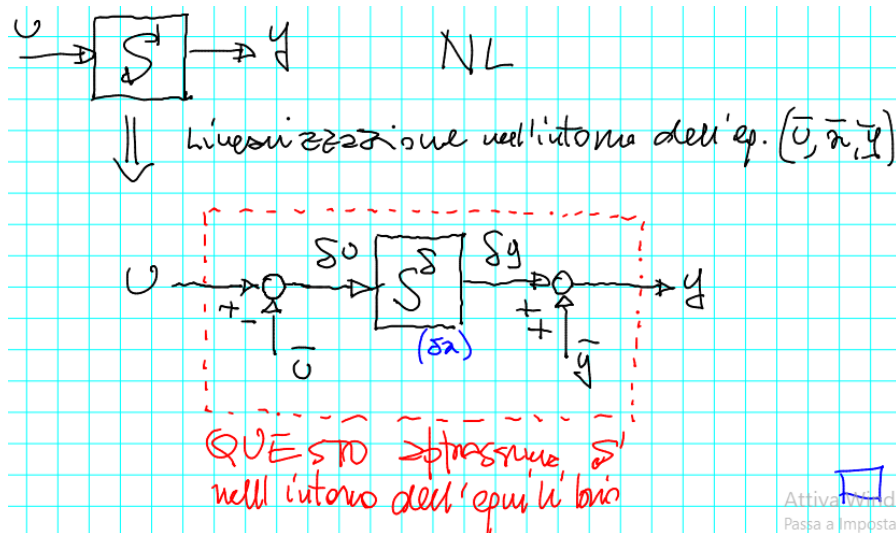 u S y NL
Linearizzazione nell'intorno dell'eq. (ū, x̄, ȳ)
δu δy
u S^δ y
+ - + +
ū (δx) ȳ
QUESTO approssima S
nell'intorno dell'equilibrio
Attiva Wind
Passa a Imposta